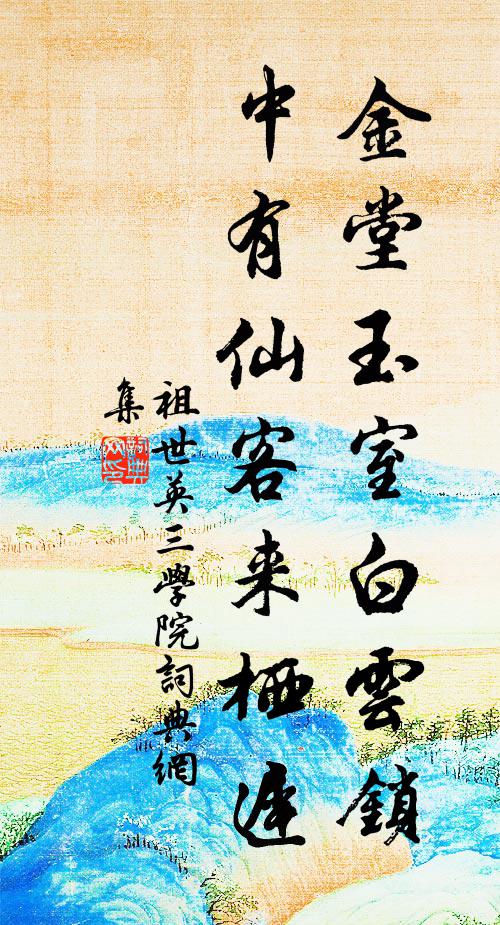 金堂玉室白雲鎖
中有仙客来栖遲
祖世英三學院詞典網
集